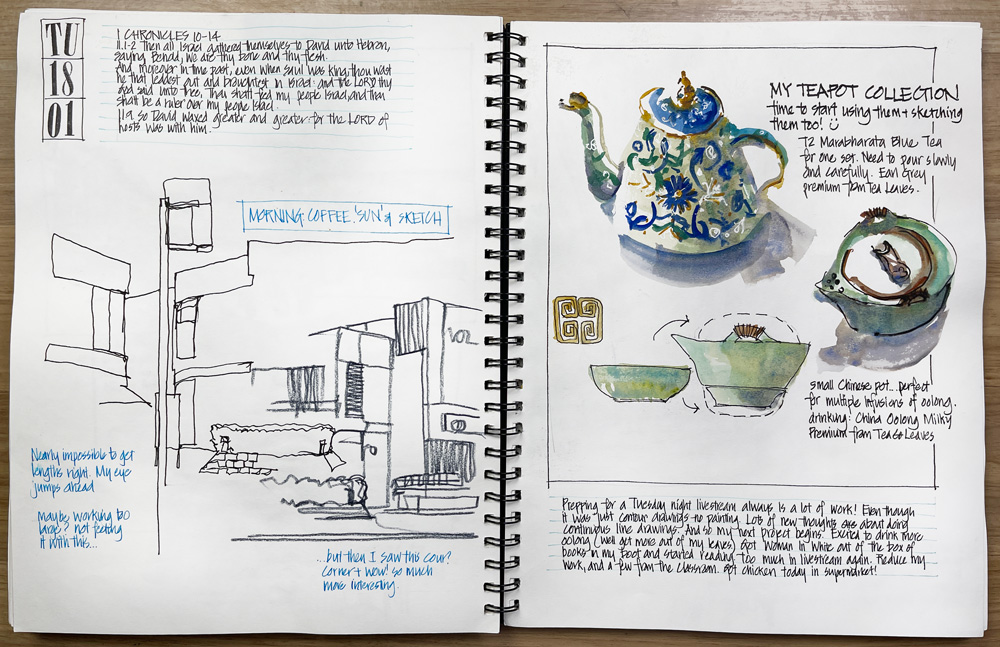 TU
18
01
1 CHRONICLES 10-14
11.1-2 Then all Israel gathered themselves to David unto Hebron,
saying, Behold, we are thy bone and thy flesh.
And moreover in time past, even when Saul was king, thou wast
he that leddest out and broughtest in Israel: and the LORD thy
God said unto thee, Thou shalt feed my people Israel, and thou
shalt be a ruler over my people Israel.
11.9. So David waxed greater and greater: for the LORD of
hosts was with him.
MORNING: COFFEE. 'SUN' & SKETCH
VOL
Nearly impossible to get
lengths right. My eye
jumps ahead
Maybe working too
large? not feeling
it with this...
...but then I saw this cour?
Corner + wow! so much
more interesting.
MY TEAPOT COLLECTION
time to start using them + sketching
them too!
T2 Marabharata Blue Tea
for one set. Need to pour slowly
and carefully. Earl Grey
premium from Tea Leaves.
small Chinese pot.. perfect
for multiple infusions of oolong.
drinking: China Oolong Milky
Premium from Tea & Leaves
Prepping for a Tuesday night livestream always is a lot of work! Even though
it was just contour drawings - no painting. Lots of new thoughts are about doing
continuous line drawings. And so my next project begins. Excited to drink more
oolong (will get more out of my leaves) Got Woman in White out of the box of
books in my boot and started reading too much in livestream again. Reduce my
work, and a few from the classroom. Got chicken today in supermarket!